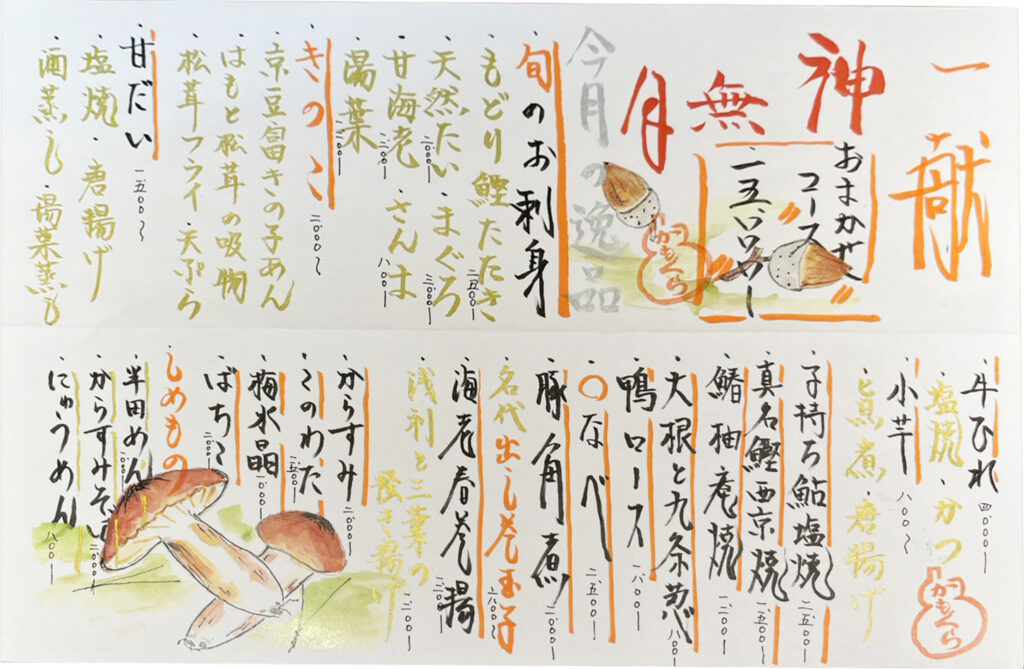 一献
神無月
おまかせ
コース
一五、〇〇〇円〜
かもくら
今月の逸品
・旬のお刺身
・もどり鰹たたき 二五〇〇〜
・天然たい 二〇〇〇〜 ・まぐろ 三〇〇〇〜
・甘海老 二〇〇〇〜 ・さんま 一八〇〇〜
・湯葉
・きのこ 二〇〇〇〜
・京豆富きの子あん
・はもと松茸の吸物
・松茸フライ・天ぷら
・甘だい 一五〇〇〜
・塩焼・唐揚げ
・酒蒸し・湯葉蒸し
・牛ひれ 四〇〇〇〜
・塩焼・かつ
・小芋 八〇〇〜
・旨煮・唐揚げ
かもくら
・子持ち鮎塩焼 二五〇〇〜
・真名鰹西京焼 二五〇〇〜
・鰆柚庵焼 一八〇〇〜
・大根と九条葱 一八〇〇〜
・鴨ロース 一八〇〇〜
・〇なべ 二五〇〇〜
・豚角煮
・名代出し巻玉子 一六〇〇〜
・海老春巻揚
・浅利と三葉の
掻き揚げ 一二〇〇〜
・からすみ 二〇〇〇〜
・このわた 一五〇〇〜
・梅水晶 一〇〇〇〜
・ばちこ 二〇〇〇〜
・しめもの
・半田めん
・からすみそば 二〇〇〇〜
・にゅうめん 一八〇〇〜